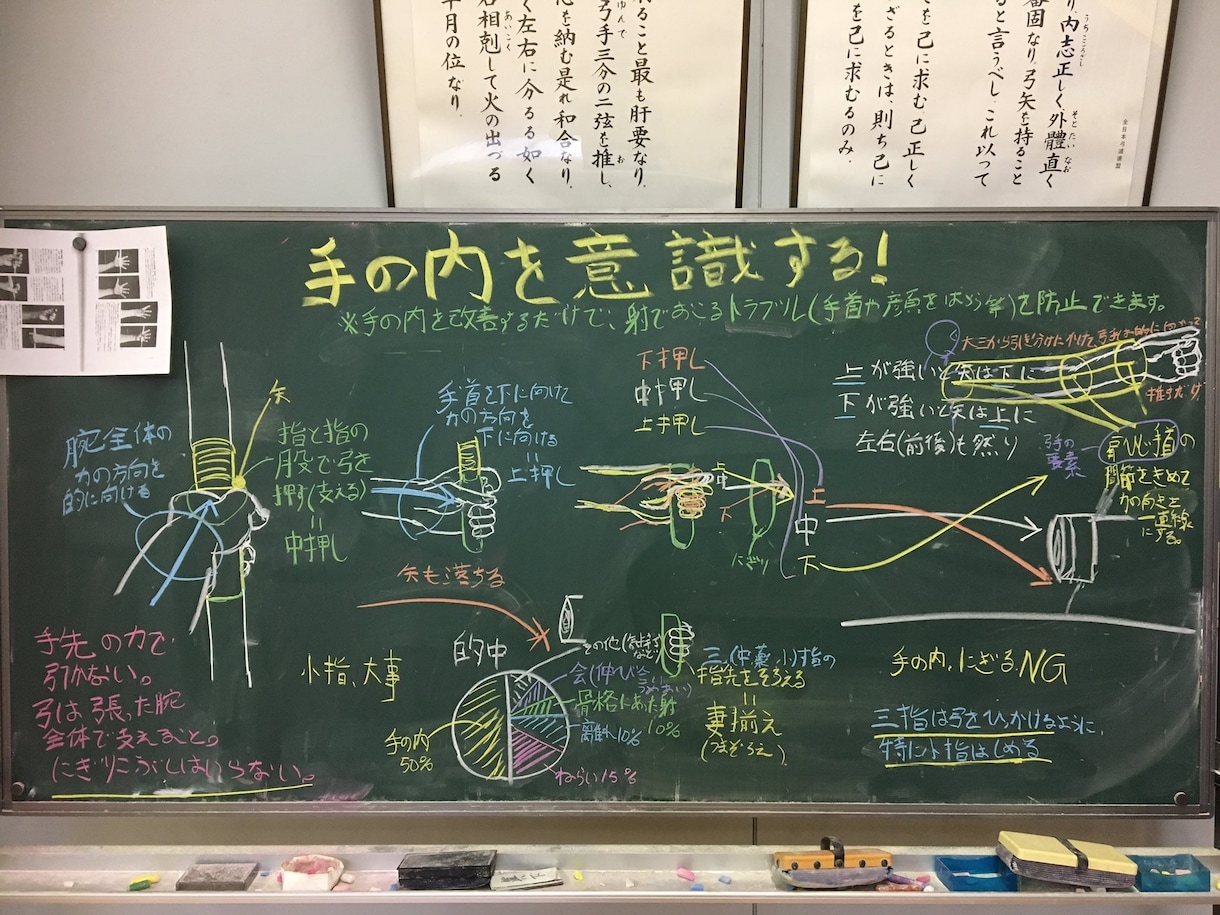 り、内志正しく、外體直く
うちこころざし
そとたいなお
審固なり。弓矢を持ること
ると言うべし。これ以って
を己に求む。己正しく
ざるときは、則ち己に
を己に求むるのみ。
全日本弓道連盟
ること最も肝要なり。
弓手三分の二弦を推し、
ゆんで
お
を納む是れ和合なり。
く左右に分るる如く
相剋して火の出づる
あいこく
半月の位なり。
手の内を意識する!
※手の内を改善するだけで、射でおこるトラブル(手首や顔をはらう等)を防止できます。
矢
腕全体の
力の方向を
的に向ける
指と指の
股で弓を
押す(支える)
=
中押し
手首を下に向けて
力の方向を
下に向ける
=
上押し
下押し
中押し
上押し
上
中
下
にぎり
上
中
下
上が強いと矢は下に
下が強いと矢は上に
左右(前後)も然り
大三から引き分けにかけて、弓手は的に向かって
推すだけ
弓手の
要素
肩ひじ首の
関節をきめて
力の向きを
一直線
にする。
矢も落ちる
手先の力で
引かない。
弓は張った腕
全体で支えること。
にぎりこぶしはいらない。
小指、大事
的中
手の内
50%
その他
会(伸び合い
つめあい)
骨格にあった射
10%
離れ10%
ねらい15%
三(中薬小)指の
指先をそろえる
=
妻揃え
(つまぞろえ)
手の内、にぎるNG
三指は弓をひっかけるように、
特に小指はしめる